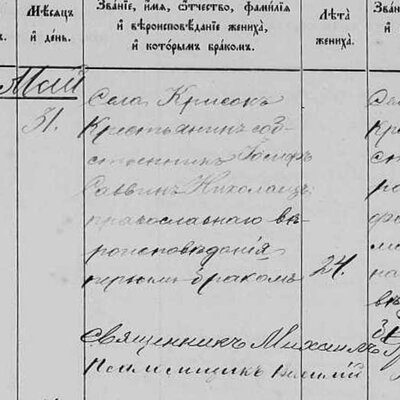 Мѣсяцъ
и день.
Званіе, имя, отчество, фамилія
и вѣроисповѣданіе жениха,
и которымъ бракомъ.
Лѣта
жениха.
Май
31.
Села Крисокъ
Крестьянинъ соб-
ственникъ Іосифъ
Саввинъ
православнаго вѣ-
роисповѣданія
первымъ бракомъ
24.
Священникъ Михаилъ
Псаломщикъ